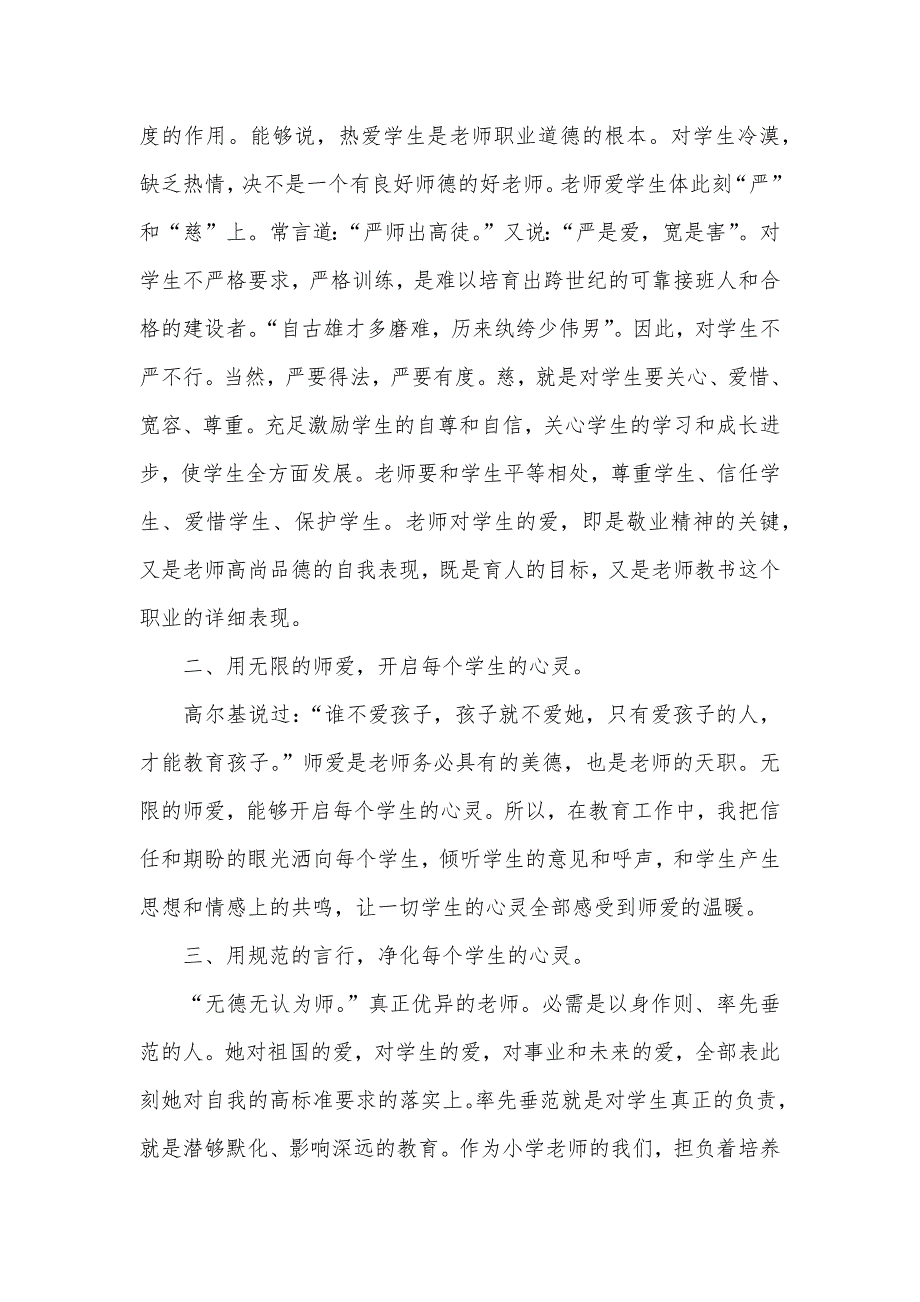 度的作用。能够说，热爱学生是老师职业道德的根本。对学生冷漠，
缺乏热情，决不是一个有良好师德的好老师。老师爱学生体此刻“严”
和“慈”上。常言道：“严师出高徒。”又说：“严是爱，宽是害”。对
学生不严格要求，严格训练，是难以培育出跨世纪的可靠接班人和合
格的建设者。“自古雄才多磨难，历来纨绔少伟男”。因此，对学生不
严不行。当然，严要得法，严要有度。慈，就是对学生要关心、爱惜、
宽容、尊重。充足激励学生的自尊和自信，关心学生的学习和成长进
步，使学生全方面发展。老师要和学生平等相处，尊重学生、信任学
生、爱惜学生、保护学生。老师对学生的爱，即是敬业精神的关键，
又是老师高尚品德的自我表现，既是育人的目标，又是老师教书这个
职业的详细表现。
二、用无限的师爱，开启每个学生的心灵。
高尔基说过：“谁不爱孩子，孩子就不爱她，只有爱孩子的人，
才能教育孩子。”师爱是老师务必具有的美德，也是老师的天职。无
限的师爱，能够开启每个学生的心灵。所以，在教育工作中，我把信
任和期盼的眼光洒向每个学生，倾听学生的意见和呼声，和学生产生
思想和情感上的共鸣，让一切学生的心灵全部感受到师爱的温暖。
三、用规范的言行，净化每个学生的心灵。
“无德无认为师。”真正优异的老师。必需是以身作则、率先垂
范的人。她对祖国的爱，对学生的爱，对事业和未来的爱，全部表此
刻她对自我的高标准要求的落实上。率先垂范就是对学生真正的负责，
就是潜够默化、影响深远的教育。作为小学老师的我们，担负着培养